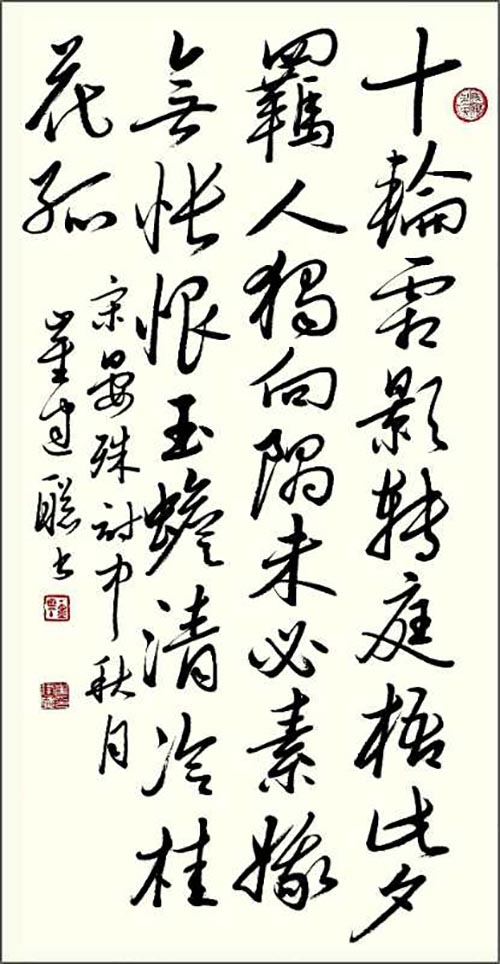 十輪霜影轉庭梧此夕
羈人獨向隅未必素娥
無悵恨玉蟾清冷桂
花孤
宋晏殊詩中秋月
崔聰书